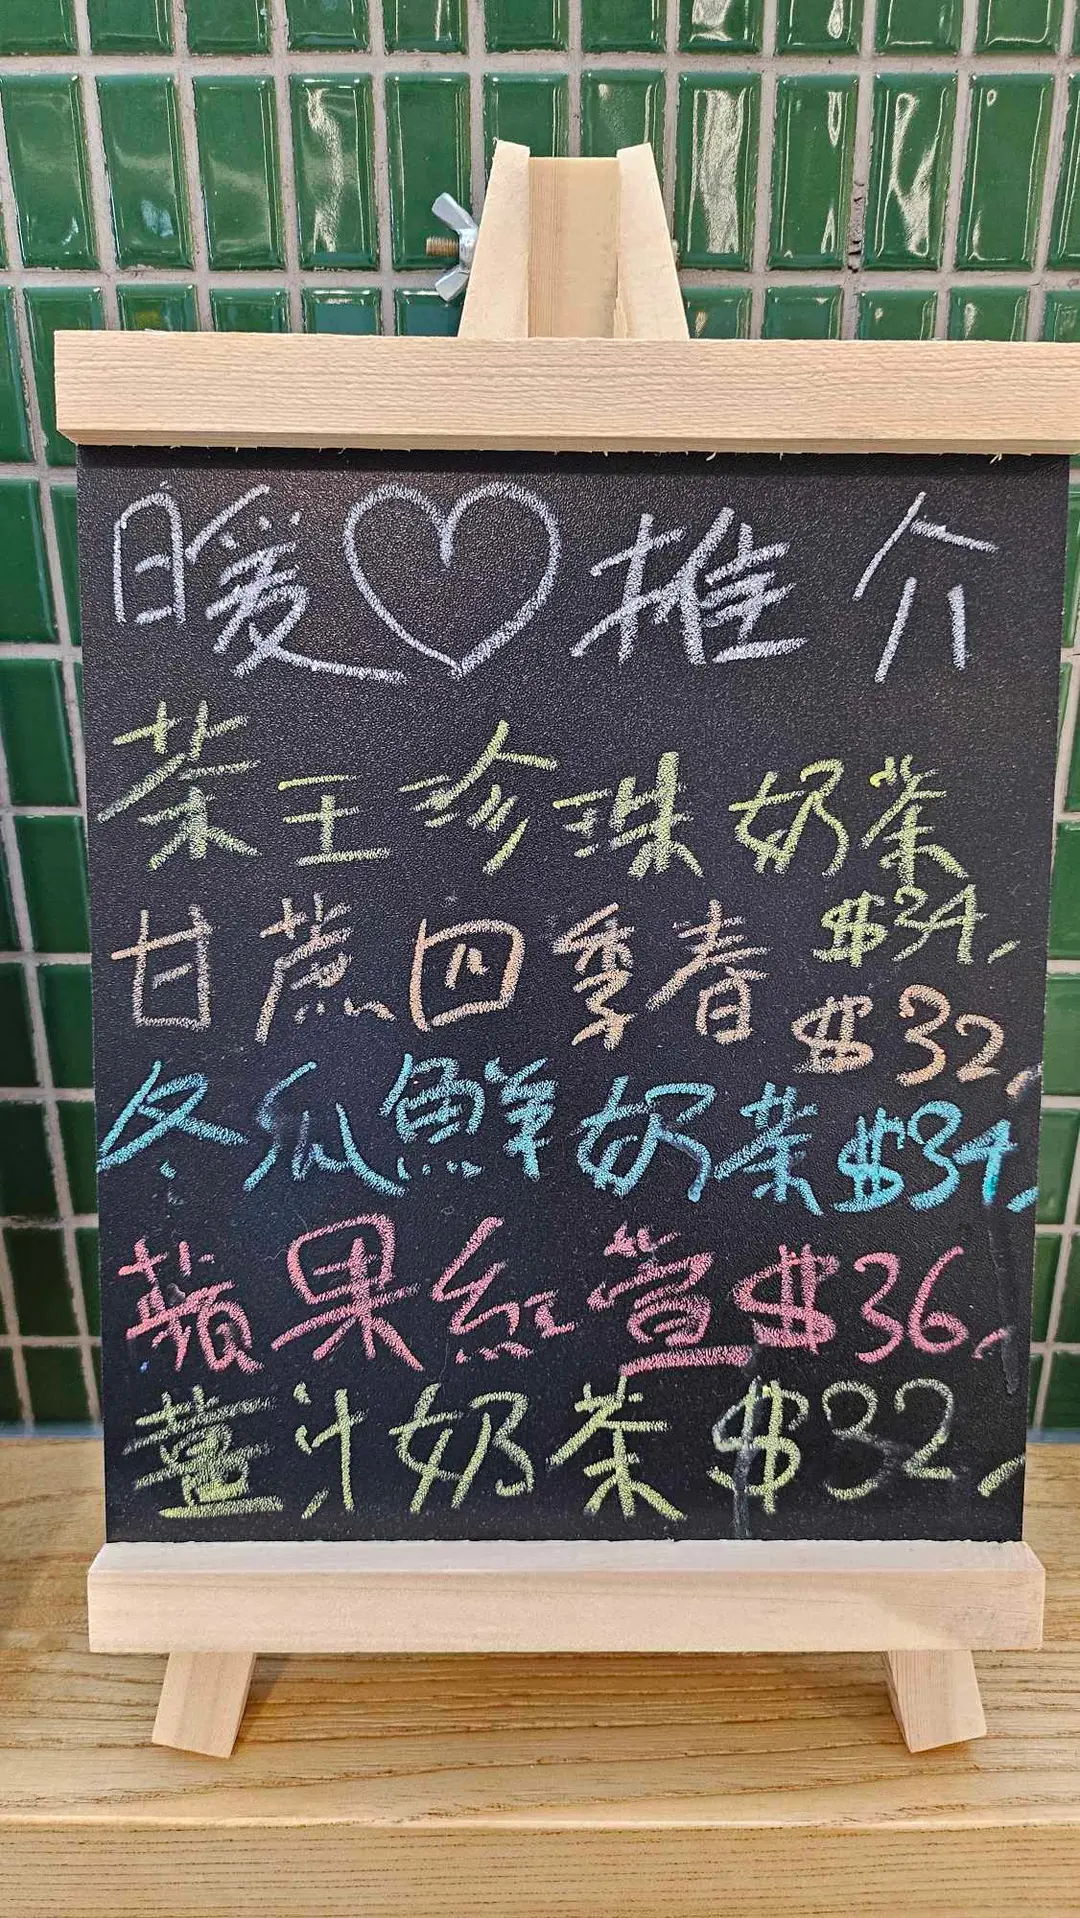 暖♡推介
茶王珍珠奶茶
$34.
甘蔗四季春 $32.
冬瓜鮮奶茶 $34.
蘋果紅萱 $36.
薑汁奶茶 $32.